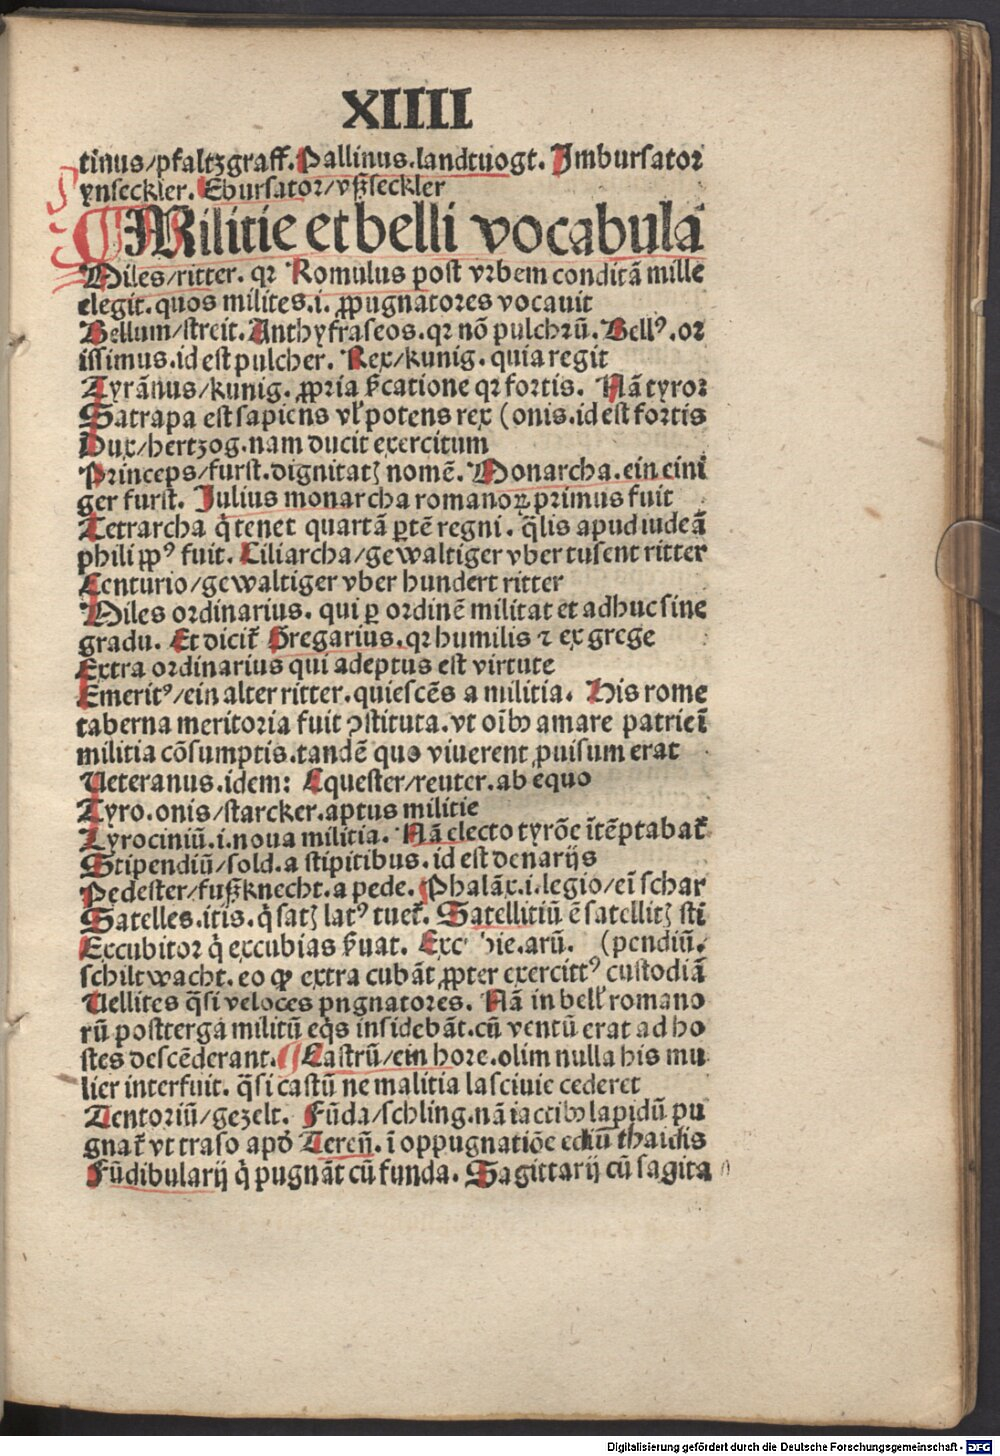 XIIII
tinus/pfaltzgraff. Pallinus.landtuogt. Imbursator
ynseckler. Ebursator/vßseckler
Militie et belli vocabula
Miles/ritter. qr Romulus post vrbem conditā mille
elegit.quos milites.i. ꝓpugnatores vocauit
Bellum/streit. Anthyfraseos.qr nō pulchrū. Bellꝰ.or
issimus.id est pulcher. Rex/kunig. quia regit
Tyrānus/kunig. ꝓpria v̄catione qr fortis. Nā tyror
Satrapa est sapiens vl̓ potens rex (onis.id est fortis
Dux/hertzog.nam ducit exercitum
Princeps/furst.dignitatꝫ nomē. Monarcha.ein eini
ger furst. Iulius monarcha romanoꝝ primus fuit
Tetrarcha q̄ tenet quartā ꝑtē regni. q̄lis apud iudeā
phili ꝓpꝰ fuit. Ciliarcha/gewaltiger vber tusent ritter
Centurio/gewaltiger vber hundert ritter
Miles ordinarius. qui ꝑ ordinē militat et adhuc sine
gradu. Et dicit̄ Gregarius.qr humilis ⁊ ex grege
Extra ordinarius qui adeptus est virtute
Emeritꝰ/ein alter ritter.quiescēs a militia. His rome
taberna meritoria fuit ꝯstituta.vt oībꝰ amare patrie ī
militia cōsumptis.tandē quo viuerent ꝓuisum erat
Ueteranus.idem: Equester/reuter.ab equo
Tyro.onis/starcker.aptus militie
Tyrociniū.i.noua militia. Nā electo tyrōe ītēptabat̄
Stipendiū/sold.a stipitibus.id est denarijs
Pedester/fußknecht.a pede. Phalāx.i.legio/eī schar
Satelles.itis.q̄ satꝫ latꝰ tuet̄. Satellitiū ē satellitꝫ sti
Excubitor q̄ excubias s̄uat. Exc bie.arū. (pendiū.
schiltwacht.eo ꝙ extra cubāt ꝓpter exercittꝰ custodiā
Uellites q̄si veloces pngnatores. Nā in bell̓ romano
rū postterga militū eq̄s insidebāt.cū ventū erat ad ho
stes descēderant. Castrū/ein hore.olim nulla his mu
lier interfuit. q̄si castū ne malitia lasciuie cederet
Tentoriū/gezelt. Fūda/schling.nā iactibꝰ lapidū pu
gnat̄ vt traso apđ Tereñ. ī oppugnatiōe ediū thaidis
Fūdibularij q̄ pugnāt cū funda. Sagittarij cū sagita
Digitalisierung gefördert durch die Deutsche Forschungsgemeinschaft - DFG